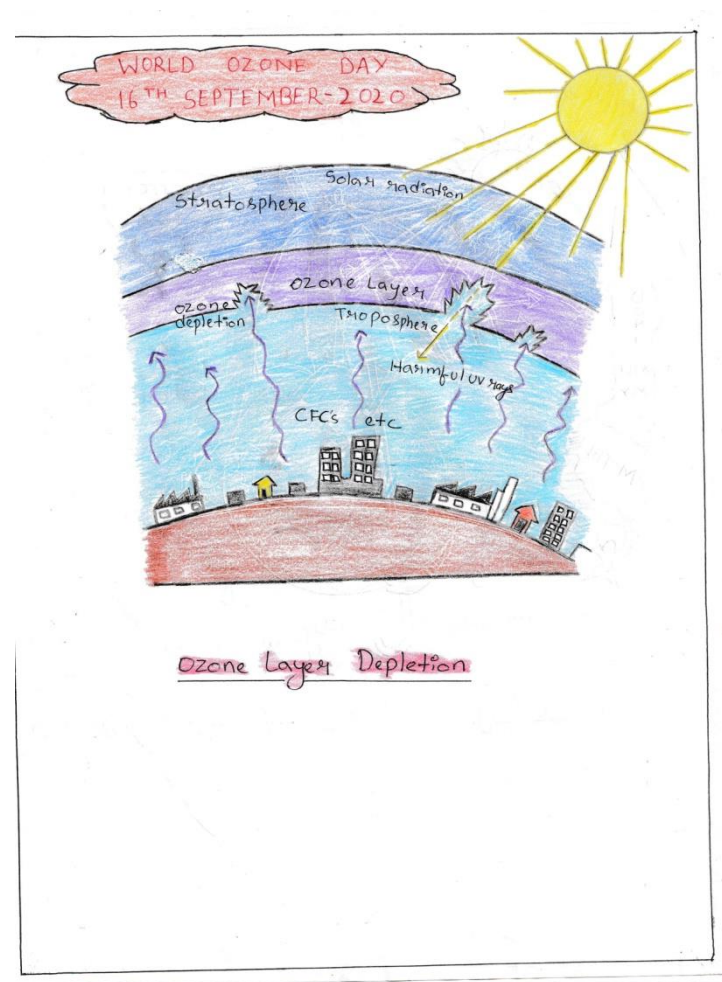 WORLD OZONE DAY
16TH SEPTEMBER-2020
Solar radiation
Stratosphere
Ozone Layer
ozone
depletion
Troposphere
Harmful uv rays
CFC's etc
Ozone Layer Depletion